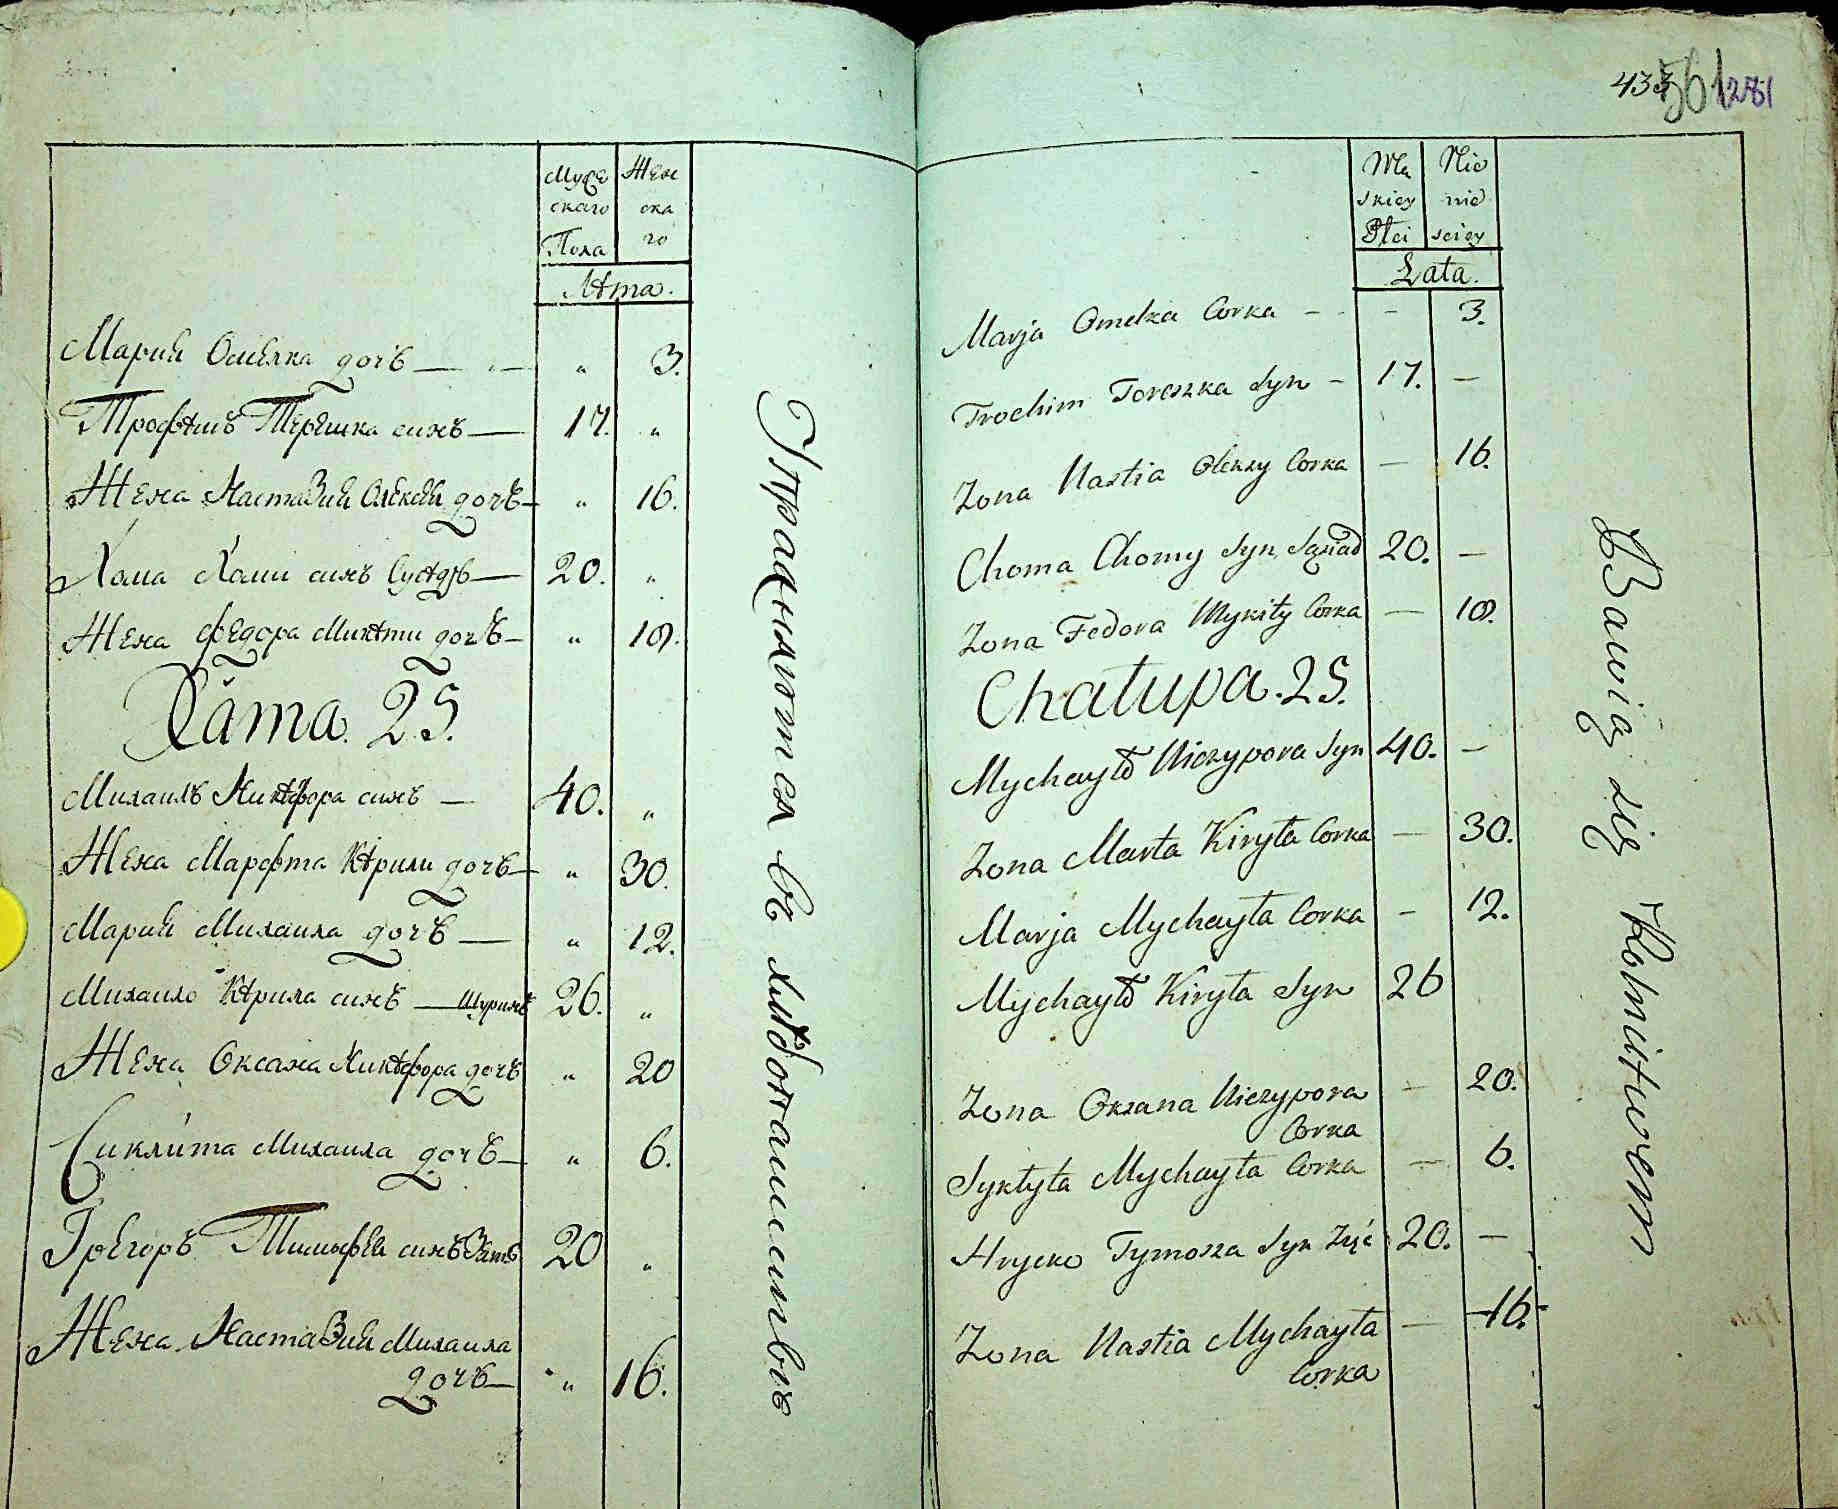 Муже Жен
скаго ска
Пола го
Лѣта.
Марий Омелка дочь — „ 3.
Трофѣмъ Терешка синъ — 17. „
Жена Настазий Олексѣй дочь — „ 16.
Хома Хоми синъ Сусѣдъ — 20. „
Жена Федора Микѣти дочь — „ 18.
Хата. 25.
Михаилъ Никѣфора синъ — 40. „
Жена Марфта Кѣрили дочь — „ 30.
Марий Михаила дочь — „ 12.
Михаило Кѣрила синъ — Шуринъ 26. „
Жена Оксана Никѣфора дочь „ 20
Сиклита Михаила дочь — „ 6.
Грегоръ Тимофѣй синъ Зять 20 „
Жена Настазий Михаила
дочь — „ 16.
Упражняются въ хлѣбопашествѣ
433 561 281
Mę Nie
skiey wie
Płci sciey
Lata.
Marja Omelka Corka - - 3.
Trochim Tereszka Syn - 17. —
Zona Nastia Olexy Corka — 16.
Choma Chomy Syn Sąsiad 20. —
Zona Fedora Mykity Corka — 18.
Chałupa. 25.
Mychayło Niczypora Syn 40. —
Zona Marta Kiryła Corka — 30.
Marja Mychayła Corka - 12.
Mychayło Kiryła Syn 26
Zona Oxana Niczypora — 20.
Corka
Sykłyta Mychayła Corka — 6.
Hrycko Tymosza Syn Zięć 20. —
Zona Nastia Mychayła — 16.
Corka
Bawią się Rolnictwem